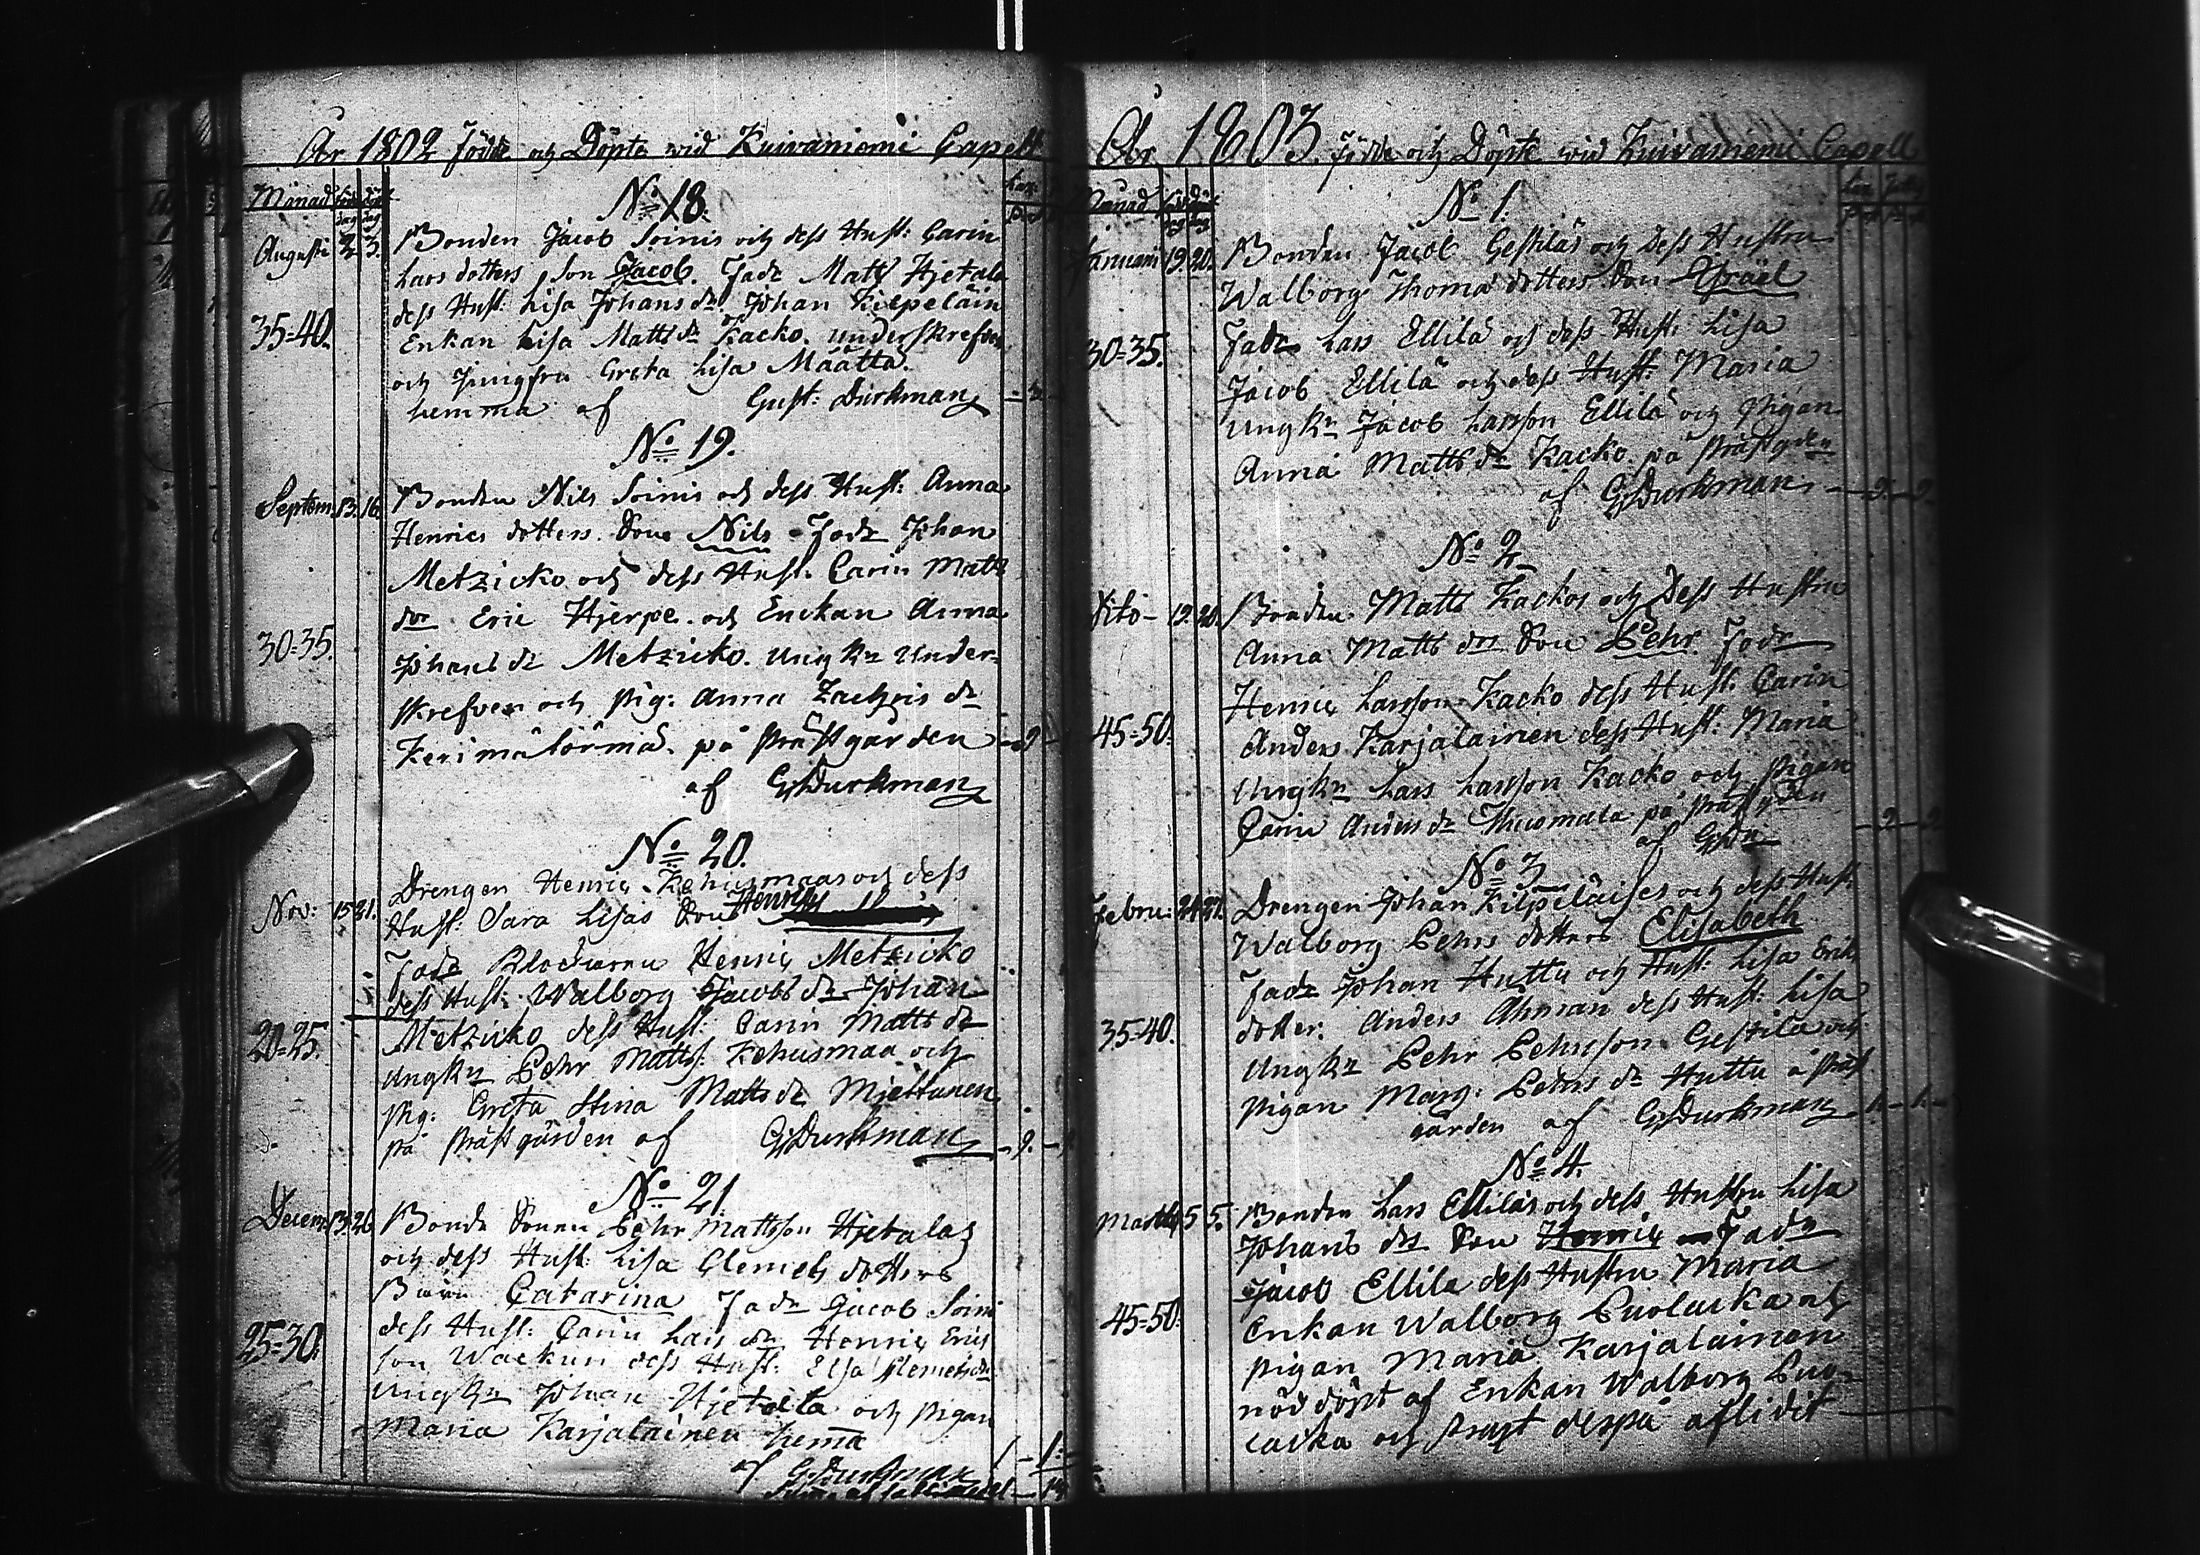 År 1802 Födde och Döpte wid Kuivaniemi Capell
Månad
No 18.
Augusti 2 3. Bonden Jacob Soinis och dess Hust: Carin
Lars dotters Son Jacob. Fadr Matts Hjetala
dess Hust: Lisa Johans dr. Johan Kilpeläin
35=40. Enkan Lisa Matts dr Kacko. underskrefven
och Jungfru Greta Lisa Määttä.
hemma af Gust: Durkman
No 19.
Septem. 13. 16. Bonden Nils Soinis och dess Hust: Anna
Henrics dotters Son Nils Fadr Johan
Metzicko och dess Hust. Carin Matts
dr Eric Hjerpe och Enckan Anna
30=35. Johans dr Metzicko. Ungkn under-
skrefven och Pig: Anna Zachris dr
på Prästgården 2
af G. Durkman
No 20.
Nov: 15 21. Drengen Henric Kehusmaas och dess
Hust: Sara Lisas Son Henric
Fadr Henric Metzicko
dess Hust: Walborg Jacobs dr Johan
20=25. Metzicko dess Hust: Carin Matts dr
Ungkn Pehr Matts: Kehusmaa och
Pig: Greta Stina Matts dr Miettunen
på Prästgården af G. Durkman 2
No 21.
Decem. 13. 26 Bonde Sonen Pehr Mattsson Hjetalas
och dess Hust: Lisa Clemets dotters
Barn Catarina Fadr Jacob Soini
dess Hust: Carin Lars dr Henric Erics
25=30. son dess Hust: Elsa Clemets dr
Ungkn Johan Hjetala och Pigan
Maria Karjalainen hema
af G. Durkman 1
År 1803. Födde och Döpte wid Kuivaniemi Capell
Månad
No 1.
Januarii 19. 20. Bonden Jacob Gestiläs och Dess Hustru
Walborg Thomæ dotters Son Israël
30=35. Fadr Lars Ellilä och dess Hust: Lisa
Jacob Ellilä och dess Hust: Maria
Ungkn Jacob Larsson Ellilä och Pigan
Anna Matts dr Kacko på Prästgden
af G. Durkman 2 2
No 2
Dito 19. 20. Bonden Matts Kackos och Dess Hustru
Anna Matts drs Son Pehr. Fadr
Henric Larsson Kacko dess Hust: Carin
45=50. Anders Karjalainen dess Hust: Maria
Ungkn Lars Larsson Kacko och Pigan
Carin Anders dr på Prästgden
af 2 2
No 3
Febru: 24 27. Drengen Johan Kilpeläises och dess Hust:
Walborg Pehrs dotters Elisabeth
Fadr Johan Huttu och Hust: Lisa Erik
35=40. dotter. Anders Ahman dess Hust: Lisa
Ungkn Pehr Pehrsson Gestilä och
Pigan Marg: Pehrs dr Huttu å Präst
gården af G. Durkman 1 1
No 4.
Martii 5 5. Bonden Lars Ellilas och dess Hustru Lisa
Johans drs Son Henric Fadr
Jacob Ellilä dess Hustru Maria
45=50. Enkan Walborg Puolacka och
Pigan Maria Karjalainen
nöddöpt af Enkan Walborg Puo-
lacka och straxt derpå aflidit